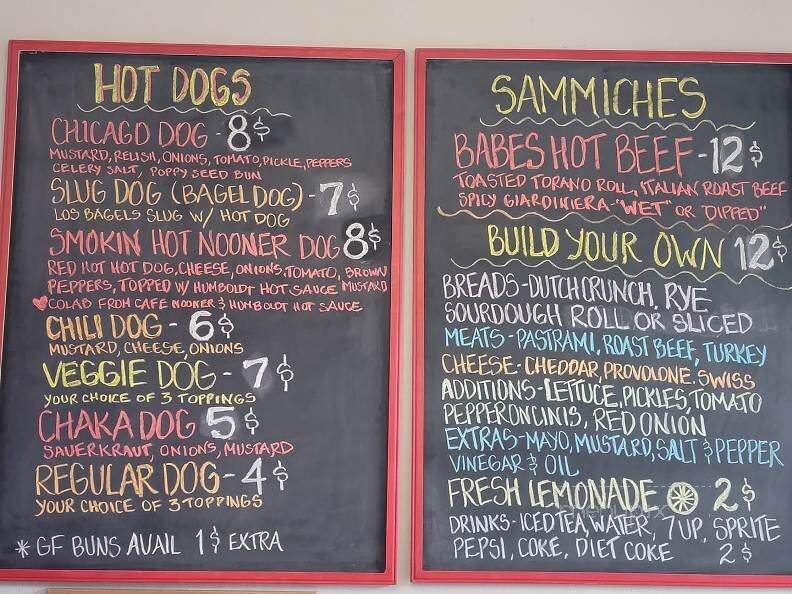 HOT DOGS
CHICAGO DOG - 8$
MUSTARD, RELISH, ONIONS, TOMATO, PICKLE, PEPPERS
CELERY SALT, POPPY SEED BUN
SLUG DOG (BAGEL DOG) - 7$
LOS BAGELS SLUG W/ HOT DOG
SMOKIN HOT NOONER DOG 8$
RED HOT HOT DOG, CHEESE, ONIONS, TOMATO, BROWN MUSTARD
PEPPERS, TOPPED W/ HUMBOLDT HOT SAUCE
COLAB FROM CAFE NOONER & HUMBOLDT HOT SAUCE
CHILI DOG - 6$
MUSTARD, CHEESE, ONIONS
VEGGIE DOG - 7$
YOUR CHOICE OF 3 TOPPINGS
CHAKA DOG 5$
SAUERKRAUT, ONIONS, MUSTARD
REGULAR DOG - 4$
YOUR CHOICE OF 3 TOPPINGS
* GF BUNS AVAIL 1$ EXTRA
SAMMICHES
BABES HOT BEEF - 12$
TOASTED TORANO ROLL, ITALIAN ROAST BEEF
SPICY GIARDINIERA - "WET" OR "DIPPED"
BUILD YOUR OWN 12$
BREADS - DUTCH CRUNCH, RYE
SOURDOUGH ROLL OR SLICED
MEATS - PASTRAMI, ROAST BEEF, TURKEY
CHEESE - CHEDDAR, PROVOLONE, SWISS
ADDITIONS - LETTUCE, PICKLES, TOMATO
PEPPERONCINIS, RED ONION
EXTRAS - MAYO, MUSTARD, SALT & PEPPER
VINEGAR & OIL
FRESH LEMONADE 2$
DRINKS - ICED TEA, WATER, 7UP, SPRITE
PEPSI, COKE, DIET COKE 2$